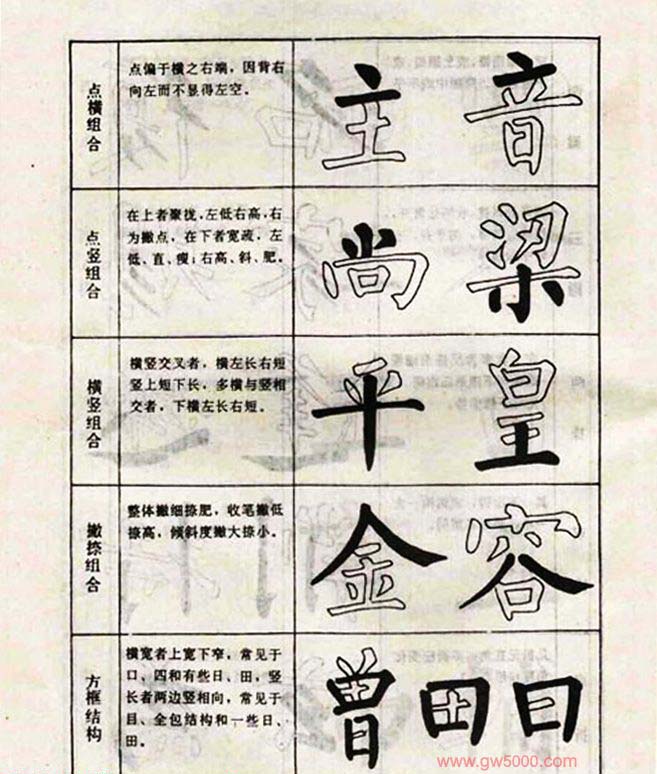 点横组合
点偏于横之右端，因背右
向左而不显得左空。
主 音
点竖组合
在上者聚拢，左低右高，右
为撇点，在下者宽疏，左
低、直、瘦；右高、斜、肥。
尚 梁
横竖组合
横竖交叉者，横左长右短
竖上短下长，多横与竖相
交者，下横左长右短。
平 皇
撇捺组合
整体撇细捺肥，收笔撇低
捺高，倾斜度撇大捺小。
金 容
方框结构
横宽者上宽下窄，常见于
口、四和有些日、田，竖
长者两边竖相向，常见于
目、全包结构和一些日、
田。
曾 田 曰
www.gw5000.com